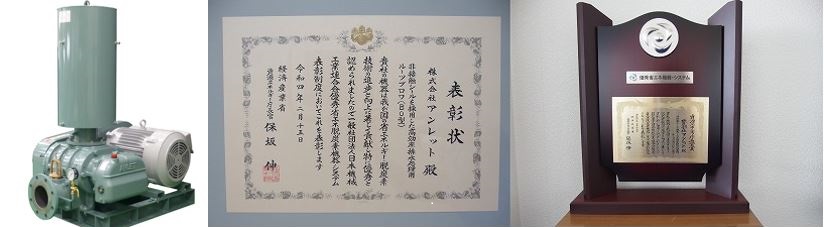 表彰状
株式会社アンレット 殿
非接触シールを採用した高効率排水処理用
ルーツブロワ(BO型)
貴社の機器は我が国の省エネルギー 脱炭素
技術の進歩と向上に著しく貢献し特に優秀と
認められましたので一般社団法人日本機械
工業連合会優秀省エネ脱炭素機器・システム
表彰制度においてこれを表彰します
令和四年二月十五日
経済産業省
資源エネルギー庁長官 保坂 伸
優秀省エネ機器・システム